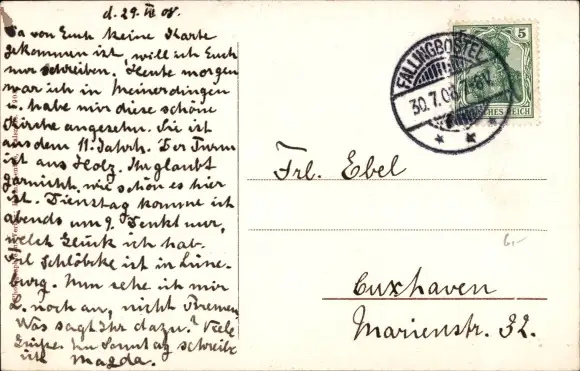 d. 29. VII 08.
Da von Euch keine Karte
gekommen ist, will ich Euch
nur schreiben. Heute morgen
war ich in Meinerdingen
u. habe mir diese schöne
Kirche angesehn. Sie ist
aus dem 11. Jahrh. Der Turm
ist aus Holz. Ihr glaubt
garnicht, wie schön es hier
ist. Dienstag komme ich
abends um 9. Denkt nur,
welch Glück ich hab.
Frl Schlöbcke ist in Lüne-
burg. Nun sehe ich mir
L. noch an, nicht Bremen.
Was sagt Ihr dazu? Viele
Grüße. Im Sonntag schreibe
ich Magda.
FALLINGBOSTEL
30.7.08.7-8V.
5
Frl. Ebel
Cuxhaven
Marienstr. 32.
6,-